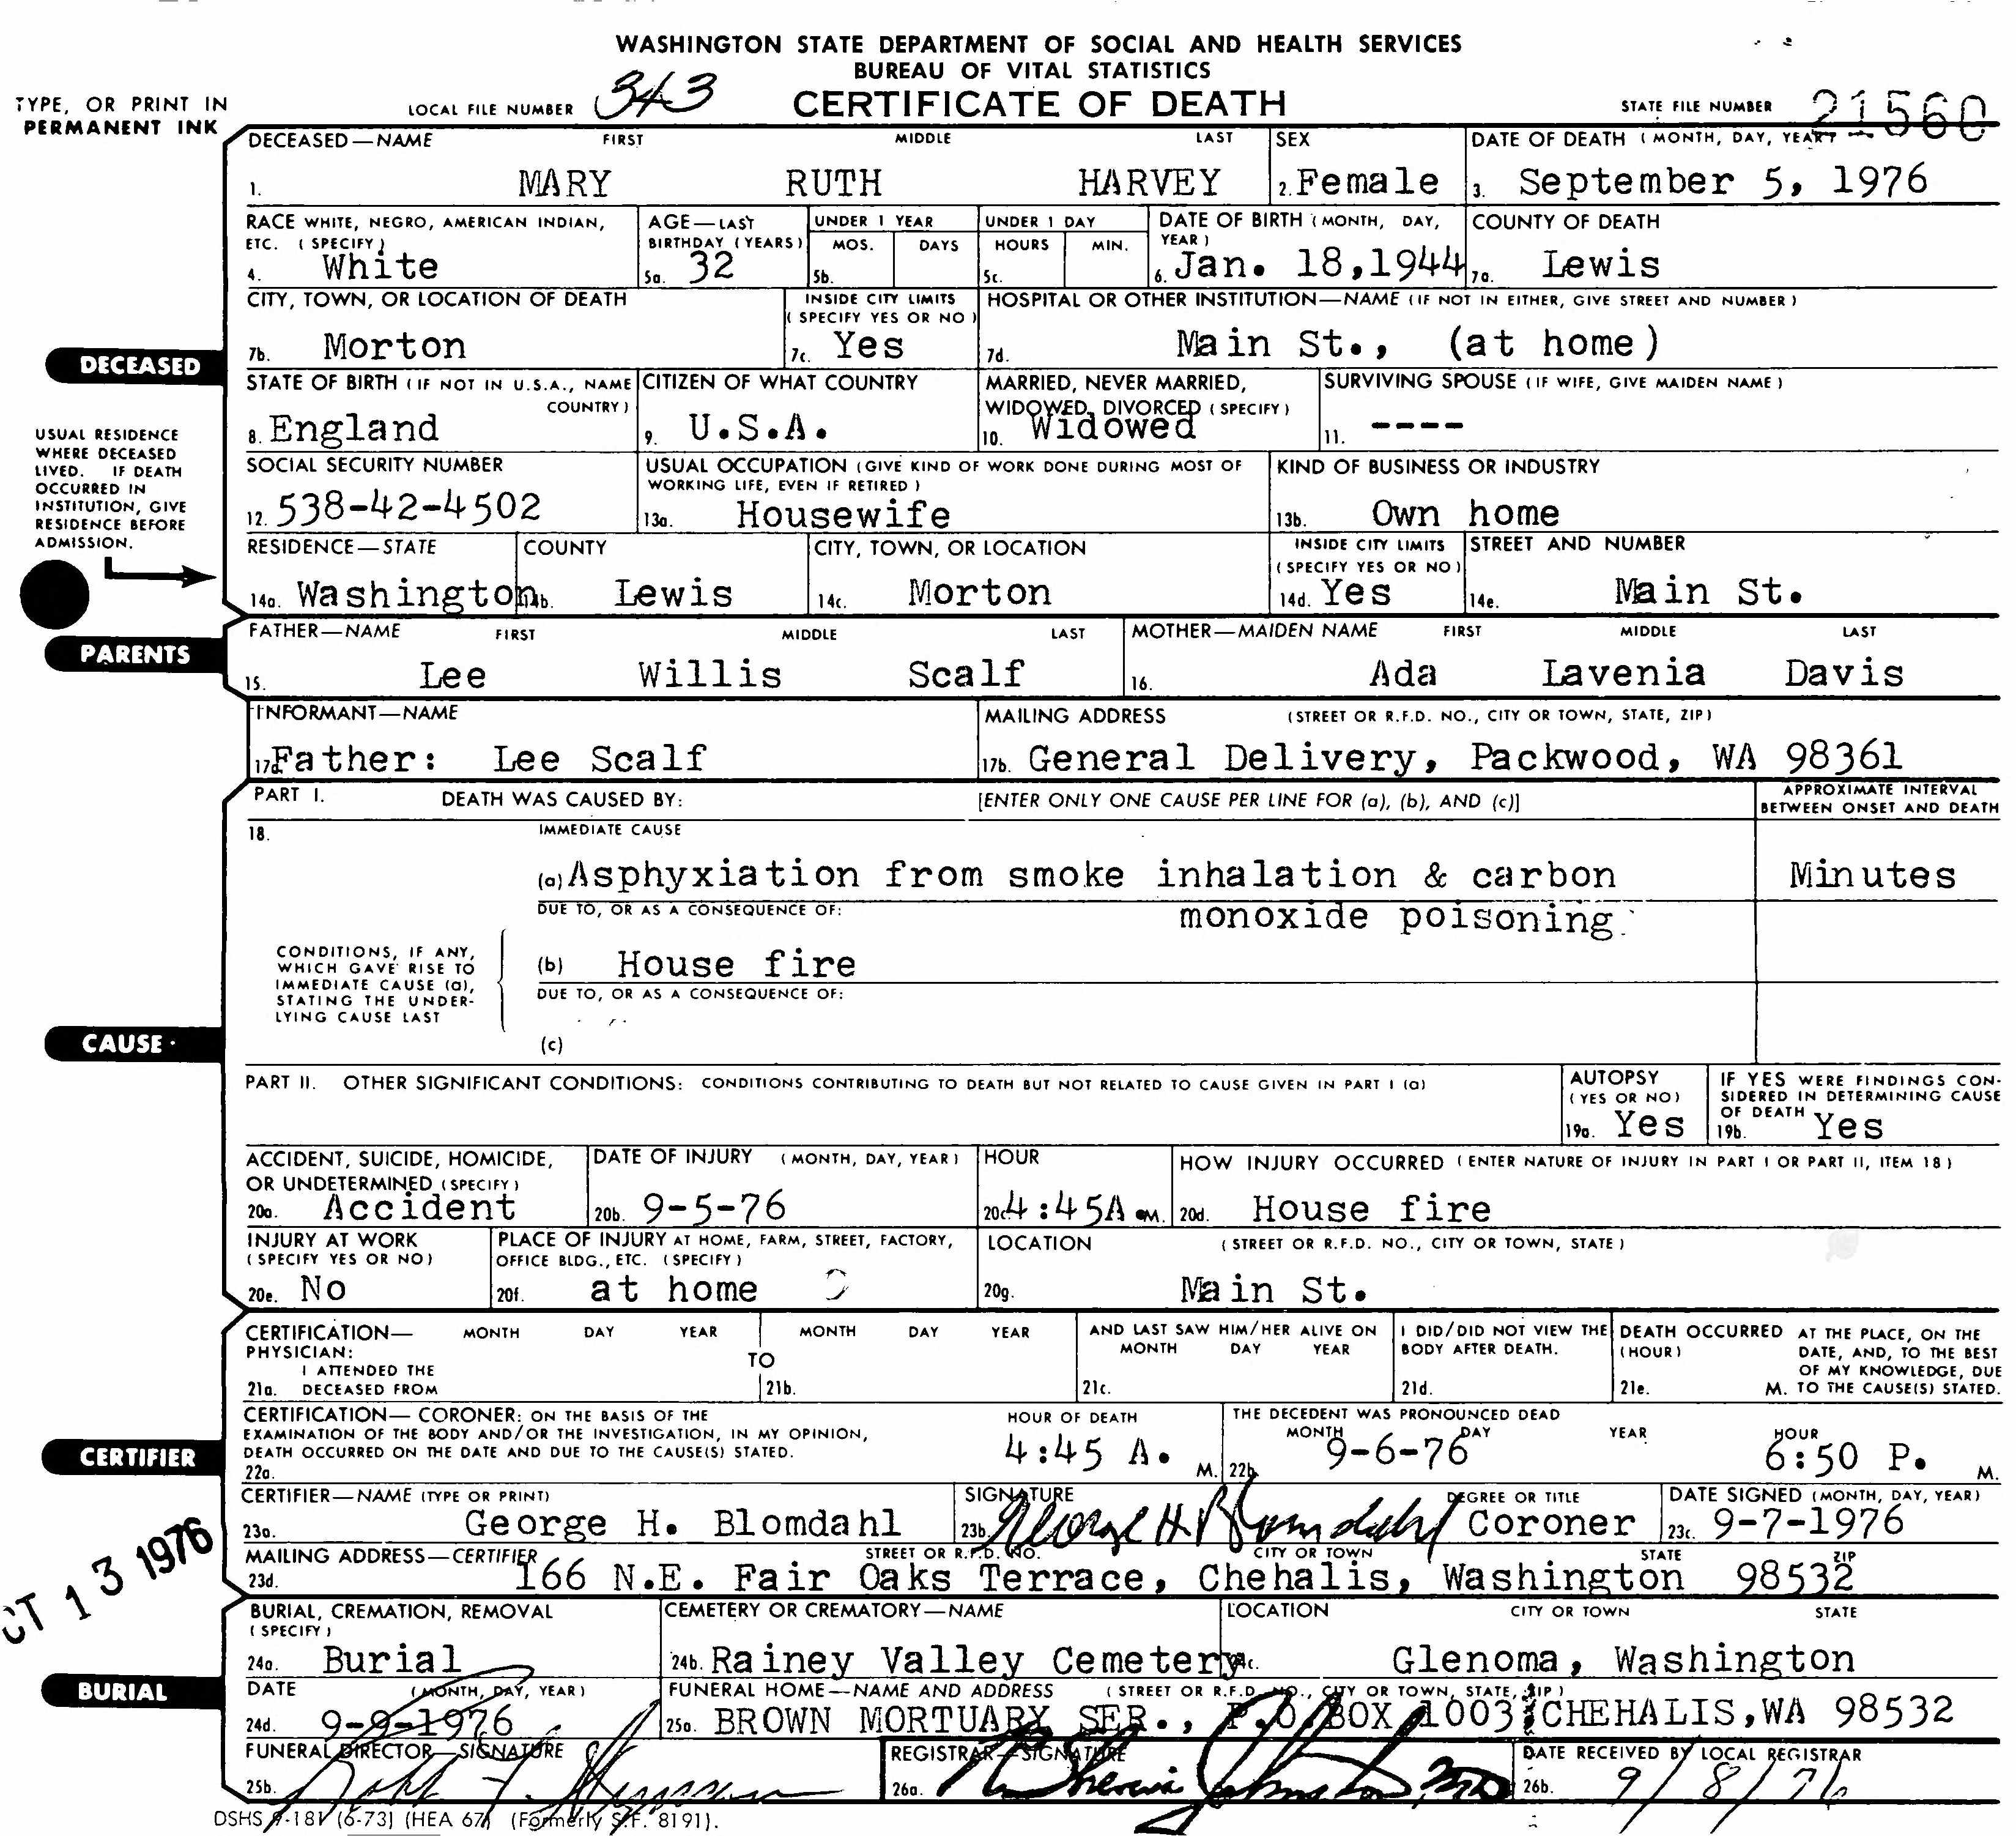 WASHINGTON STATE DEPARTMENT OF SOCIAL AND HEALTH SERVICES
BUREAU OF VITAL STATISTICS
TYPE, OR PRINT IN
PERMANENT INK
LOCAL FILE NUMBER 343
CERTIFICATE OF DEATH
STATE FILE NUMBER 21560
DECEASED—NAME FIRST MIDDLE LAST SEX DATE OF DEATH (MONTH, DAY, YEAR)
1. MARY RUTH HARVEY 2. Female 3. September 5, 1976
RACE WHITE, NEGRO, AMERICAN INDIAN, AGE—LAST UNDER 1 YEAR UNDER 1 DAY DATE OF BIRTH (MONTH, DAY, COUNTY OF DEATH
ETC. (SPECIFY) BIRTHDAY (YEARS) MOS. DAYS HOURS MIN. YEAR)
4. White 5a. 32 5b. 5c. 6. Jan. 18,1944 7a. Lewis
CITY, TOWN, OR LOCATION OF DEATH INSIDE CITY LIMITS HOSPITAL OR OTHER INSTITUTION—NAME (IF NOT IN EITHER, GIVE STREET AND NUMBER)
(SPECIFY YES OR NO)
7b. Morton 7c. Yes 7d. Main St., (at home)
DECEASED
STATE OF BIRTH (IF NOT IN U.S.A., NAME CITIZEN OF WHAT COUNTRY MARRIED, NEVER MARRIED, SURVIVING SPOUSE (IF WIFE, GIVE MAIDEN NAME)
COUNTRY) WIDOWED, DIVORCED (SPECIFY)
8. England 9. U.S.A. 10. Widowed 11. ----
USUAL RESIDENCE
WHERE DECEASED
LIVED. IF DEATH
OCCURRED IN
INSTITUTION, GIVE
RESIDENCE BEFORE
ADMISSION.
SOCIAL SECURITY NUMBER USUAL OCCUPATION (GIVE KIND OF WORK DONE DURING MOST OF KIND OF BUSINESS OR INDUSTRY
WORKING LIFE, EVEN IF RETIRED)
12. 538-42-4502 13a. Housewife 13b. Own home
RESIDENCE—STATE COUNTY CITY, TOWN, OR LOCATION INSIDE CITY LIMITS STREET AND NUMBER
(SPECIFY YES OR NO)
14a. Washington 14b. Lewis 14c. Morton 14d. Yes 14e. Main St.
PARENTS
FATHER—NAME FIRST MIDDLE LAST MOTHER—MAIDEN NAME FIRST MIDDLE LAST
15. Lee Willis Scalf 16. Ada Lavenia Davis
INFORMANT—NAME MAILING ADDRESS (STREET OR R.F.D. NO., CITY OR TOWN, STATE, ZIP)
17a. Father: Lee Scalf 17b. General Delivery, Packwood, WA 98361
PART I. DEATH WAS CAUSED BY: [ENTER ONLY ONE CAUSE PER LINE FOR (a), (b), AND (c)] APPROXIMATE INTERVAL
BETWEEN ONSET AND DEATH
18. IMMEDIATE CAUSE
(a) Asphyxiation from smoke inhalation & carbon Minutes
DUE TO, OR AS A CONSEQUENCE OF: monoxide poisoning
CONDITIONS, IF ANY,
WHICH GAVE RISE TO
IMMEDIATE CAUSE (a),
STATING THE UNDER-
LYING CAUSE LAST
(b) House fire
DUE TO, OR AS A CONSEQUENCE OF:
(c)
CAUSE
PART II. OTHER SIGNIFICANT CONDITIONS: CONDITIONS CONTRIBUTING TO DEATH BUT NOT RELATED TO CAUSE GIVEN IN PART I (a) AUTOPSY IF YES WERE FINDINGS CON-
(YES OR NO) SIDERED IN DETERMINING CAUSE
OF DEATH
19a. Yes 19b. Yes
ACCIDENT, SUICIDE, HOMICIDE, DATE OF INJURY (MONTH, DAY, YEAR) HOUR HOW INJURY OCCURRED (ENTER NATURE OF INJURY IN PART I OR PART II, ITEM 18)
OR UNDETERMINED (SPECIFY)
20a. Accident 20b. 9-5-76 20c. 4:45A.M. 20d. House fire
INJURY AT WORK PLACE OF INJURY AT HOME, FARM, STREET, FACTORY, LOCATION (STREET OR R.F.D. NO., CITY OR TOWN, STATE)
(SPECIFY YES OR NO) OFFICE BLDG., ETC. (SPECIFY)
20e. No 20f. at home 20g. Main St.
CERTIFICATION— MONTH DAY YEAR MONTH DAY YEAR AND LAST SAW HIM/HER ALIVE ON I DID/DID NOT VIEW THE DEATH OCCURRED AT THE PLACE, ON THE
PHYSICIAN: TO MONTH DAY YEAR BODY AFTER DEATH. (HOUR) DATE, AND, TO THE BEST
I ATTENDED THE OF MY KNOWLEDGE, DUE
21a. DECEASED FROM 21b. 21c. 21d. 21e. M. TO THE CAUSE(S) STATED.
CERTIFICATION—CORONER: ON THE BASIS OF THE HOUR OF DEATH THE DECEDENT WAS PRONOUNCED DEAD
EXAMINATION OF THE BODY AND/OR THE INVESTIGATION, IN MY OPINION, MONTH DAY YEAR HOUR
DEATH OCCURRED ON THE DATE AND DUE TO THE CAUSE(S) STATED.
22a. 4:45 A. M. 22b. 9-6-76 6:50 P. M.
CERTIFIER
CERTIFIER—NAME (TYPE OR PRINT) SIGNATURE DEGREE OR TITLE DATE SIGNED (MONTH, DAY, YEAR)
23a. George H. Blomdahl 23b. George H. Blomdahl Coroner 23c. 9-7-1976
MAILING ADDRESS—CERTIFIER STREET OR R.F.D. NO. CITY OR TOWN STATE ZIP
23d. 166 N.E. Fair Oaks Terrace, Chehalis, Washington 98532
CT 13 1976
BURIAL, CREMATION, REMOVAL CEMETERY OR CREMATORY—NAME LOCATION CITY OR TOWN STATE
(SPECIFY)
24a. Burial 24b. Rainey Valley Cemetery 24c. Glenoma, Washington
BURIAL
DATE (MONTH, DAY, YEAR) FUNERAL HOME—NAME AND ADDRESS (STREET OR R.F.D. NO., CITY OR TOWN, STATE, ZIP)
24d. 9-9-1976 25a. BROWN MORTUARY SER., P.O. BOX 1003, CHEHALIS, WA 98532
FUNERAL DIRECTOR—SIGNATURE REGISTRAR—SIGNATURE DATE RECEIVED BY LOCAL REGISTRAR
25b. 26a. 26b. 9/8/76
DSHS 9-181 (6-73) (HEA 67) (Formerly S.F. 8191).